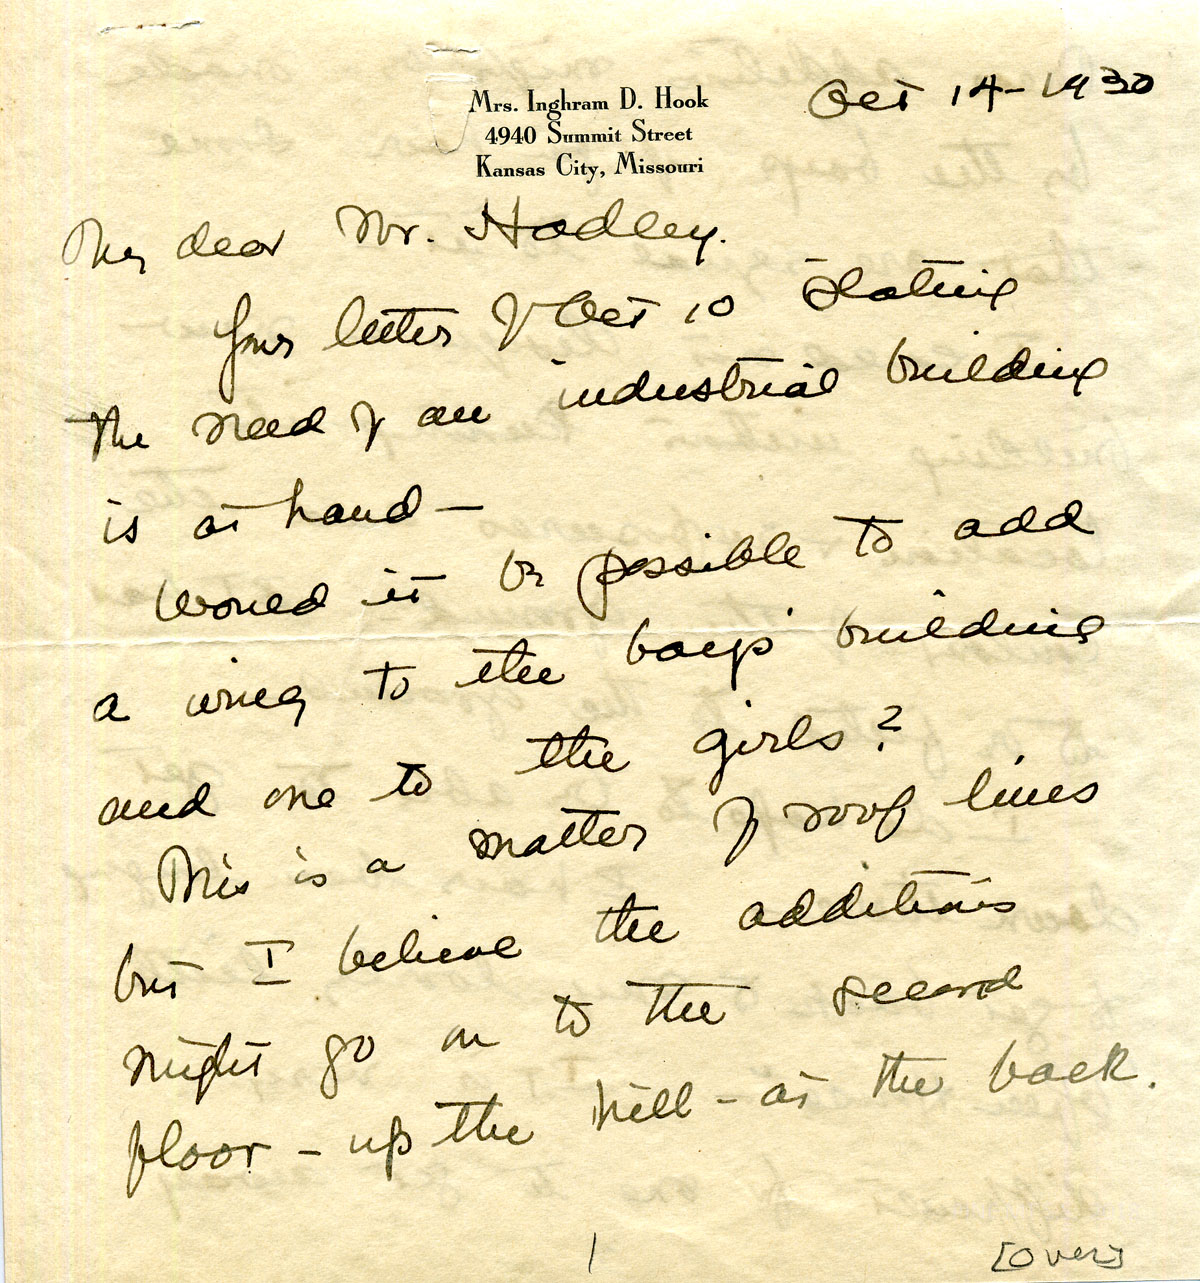 Mrs. Inghram D. Hook
4940 Summit Street
Kansas City, Missouri
Oct 14-1930
My dear Mr. Hadley.
Your letter of Oct 10 stating
the need of an industrial building
is at hand—
Would it be possible to add
a wing to the boys' building
and one to the girls?
This is a matter of roof lines
but I believe the additions
might go on to the second
floor – up the hill – at the back.
1
[over]